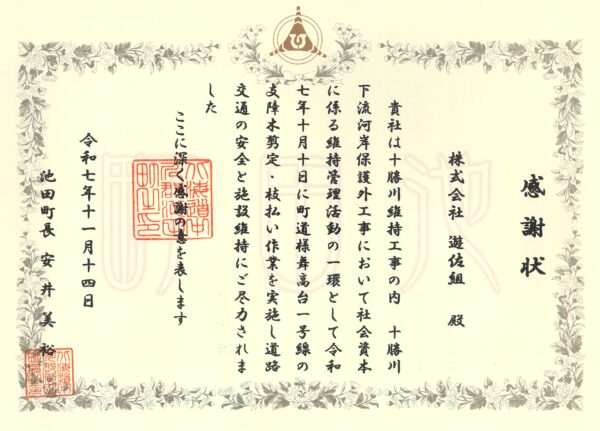 感謝状
株式会社 遊佐組 殿
貴社は十勝川維持工事の内 十勝川
下流河岸保護外工事において社会資本
に係る維持管理活動の一環として令和
七年十月十日に町道様舞高台一号線の
支障木剪定・枝払い作業を実施し道路
交通の安全と施設維持にご尽力されま
した
ここに深く感謝の意を表します
令和七年十一月十四日
池田町長 安井美裕